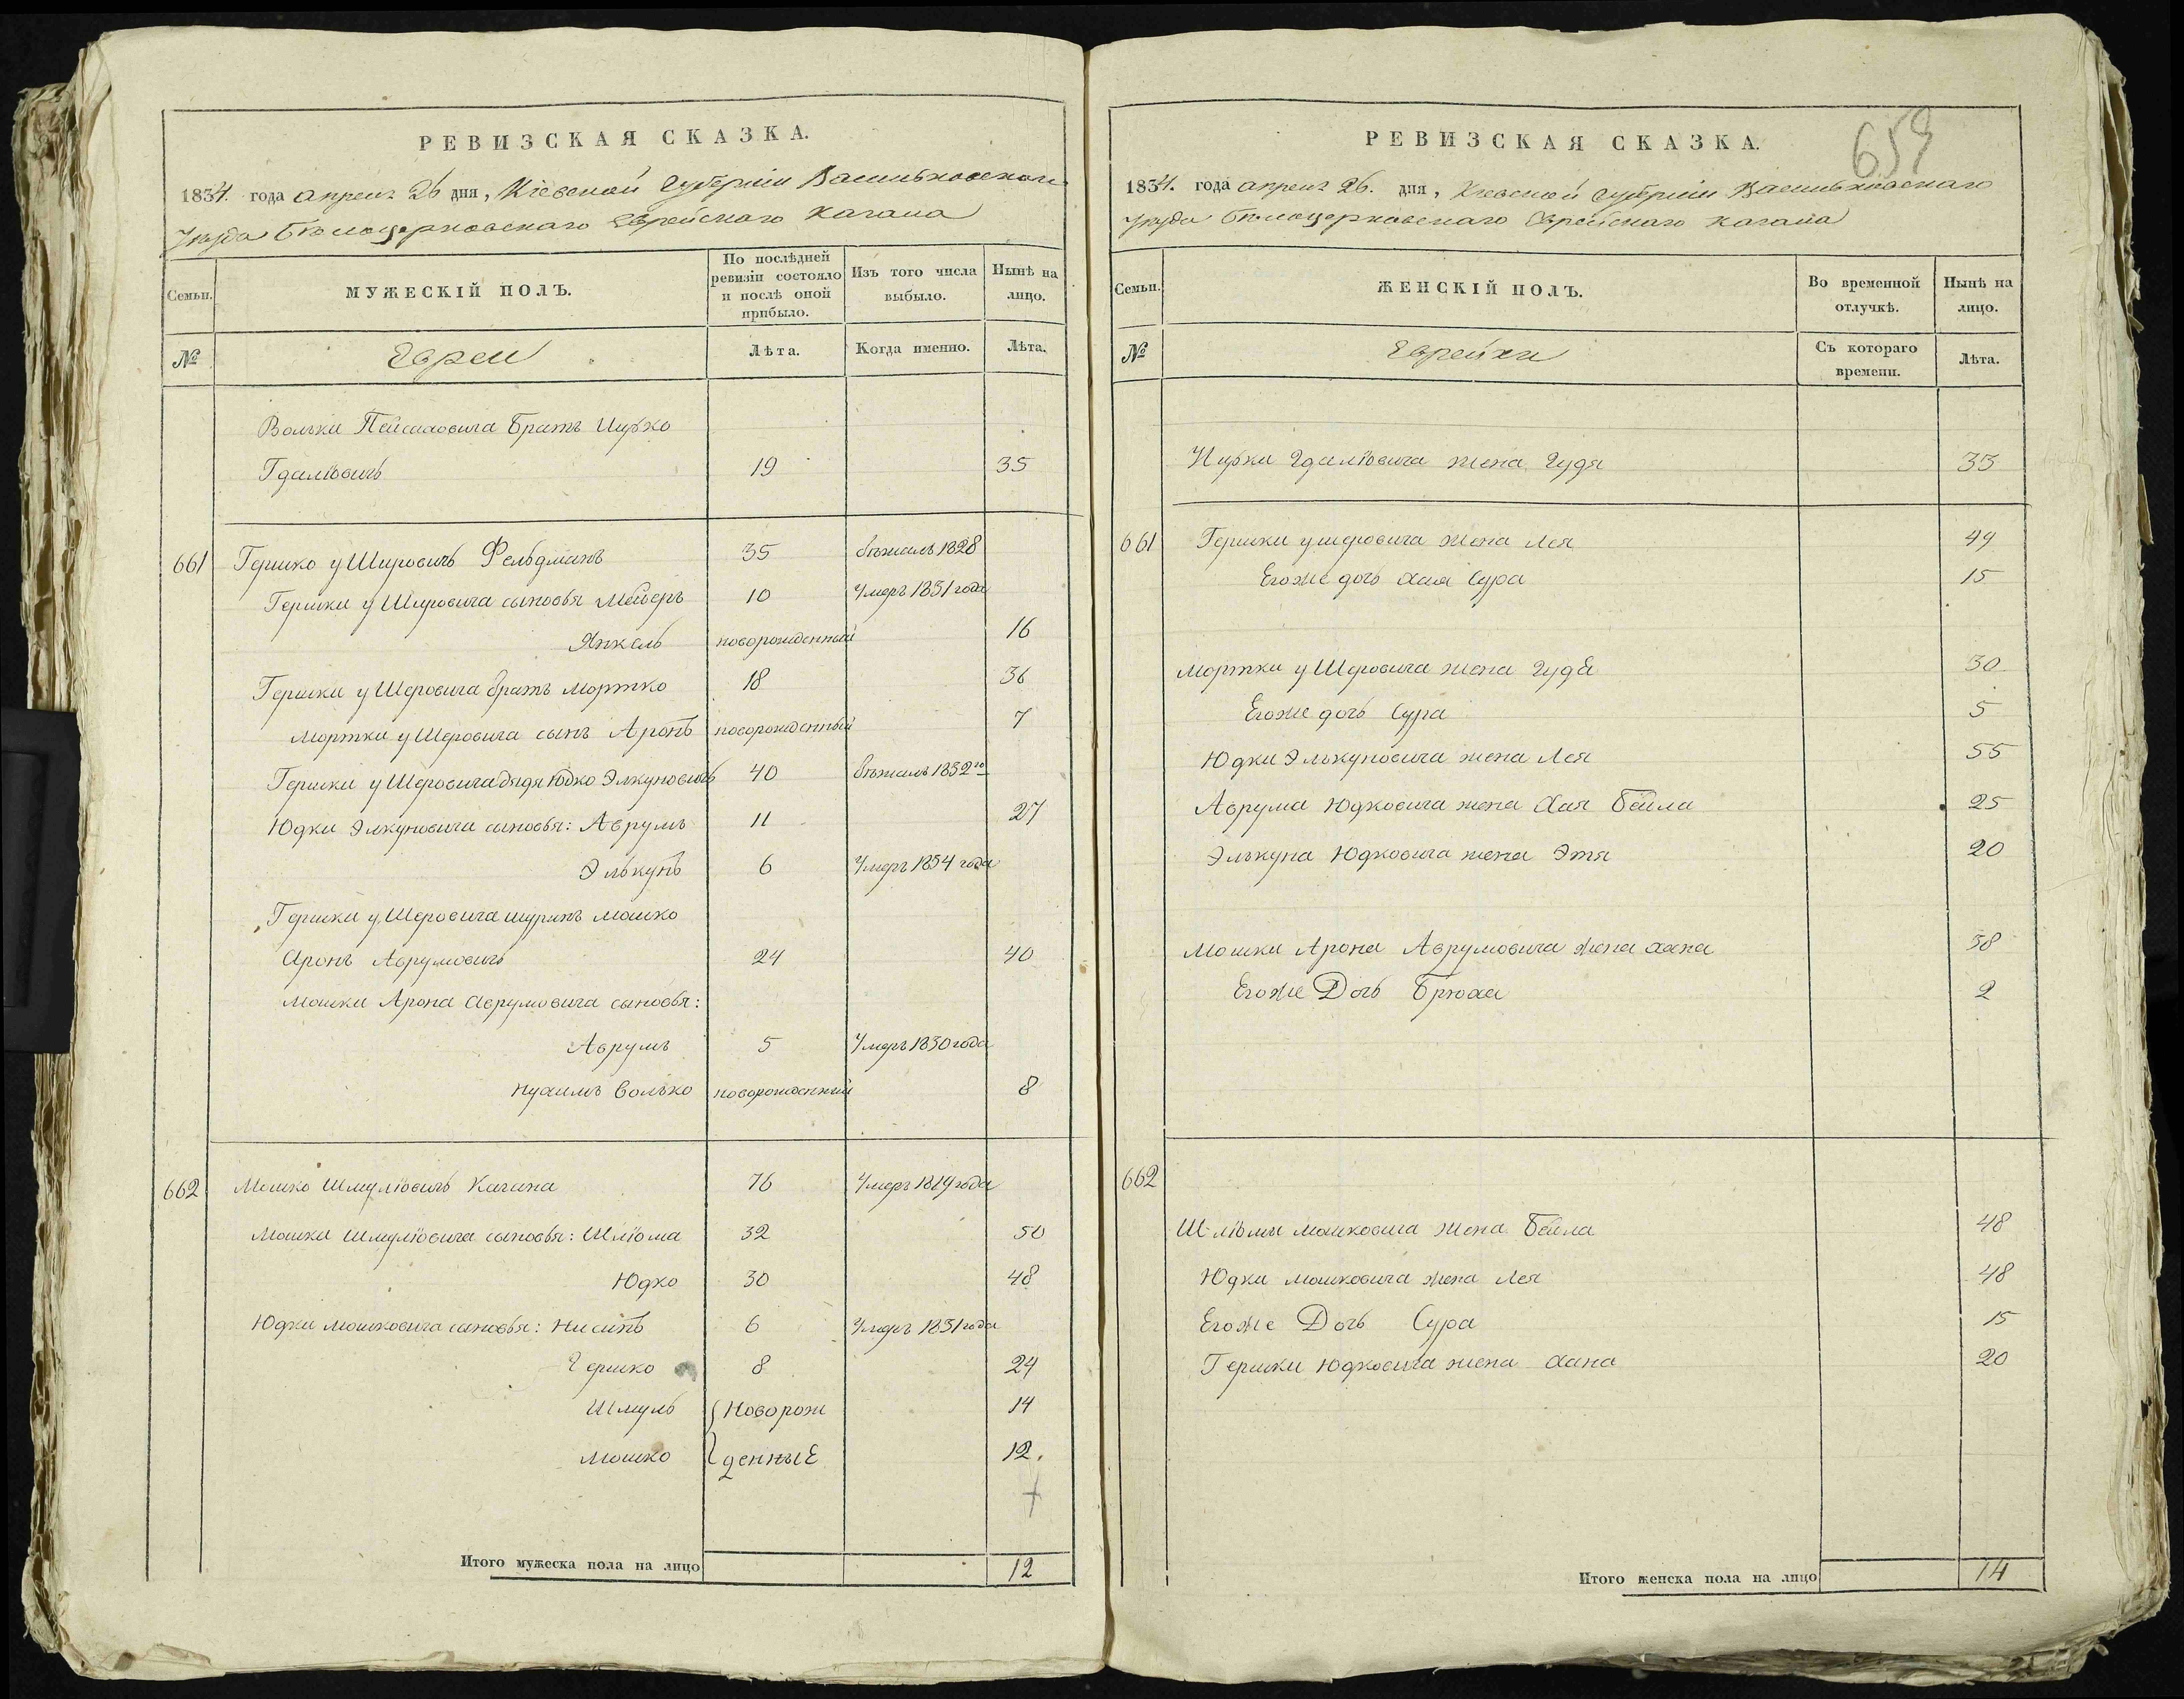 РЕВИЗСКАЯ СКАЗКА.
1834. года апреля 26 дня, Кіевской Губерніи Васильковскаго
Уезда Белоцерковскаго Еврейскаго Кагала
Семьи.
МУЖЕСКІЙ ПОЛЪ.
По послѣдней ревизіи состояло и послѣ оной прибыло.
Изъ того числа выбыло.
Нынѣ на лицо.
№
Евреи
Лѣта.
Когда именно.
Лѣта.
Вольки Пейсаховича братъ Ицько
Гдаліовичъ 19 35
661 Гершко уШеровичъ Фельдманъ 35 бѣжалъ 1828
Гершки уШеровича сыновья Мейеръ 10 Умеръ 1831 года
Янкель новорожденный 16
Гершки уШеровича братъ Мортко 18 36
Мортки уШеровича сынъ Аронъ новорожденный 7
Гершки уШеровича дядя Юдко Элкуновичъ 40 бѣжалъ 1832 го
Юдки Элкуновича сыновья: Аврумъ 11 27
Элькунъ 6 Умеръ 1834 года
Гершки уШеровича шуринъ Мошко
Аронъ Аврумовичъ 24 40
Мошки Арона Аврумовича сыновья:
Аврумъ 5 Умеръ 1830 года
Нухимъ Волько новорожденный 8
662 Мошко Шмуліовичъ Кагана 76 Умеръ 1819 года
Мошки Шмуліовича сыновья: Шліома 32 50
Юдко 30 48
Юдки Мошковича сыновья: Нисинъ 6 Умеръ 1831 года
Гершко 8 24
Шмуль Новорож 14
Мошко денные 12.
Итого мужеска пола на лицо 12
РЕВИЗСКАЯ СКАЗКА.
659
1834. года апреля 26. дня, Кіевской Губерніи Васильковскаго
Уезда Белоцерковскаго Еврейскаго Кагала
Семьи.
ЖЕНСКІЙ ПОЛЪ.
Во временной отлучкѣ.
Нынѣ на лицо.
№
Еврейки
Съ котораго времени.
Лѣта.
Ицьки Гдаліовича жена Гудя 33
661 Гершки уШеровича жена Лея 49
Егоже дочь Хая Сура 15
Мортки уШеровича жена Гуде 30
Егоже дочь Сура 5
Юдки Элькуновича жена Лея 55
Аврума Юдковича жена Хая Бейла 25
Элькуна Юдковича жена Этя 20
Мошки Арона Аврумовича жена Хана 38
Егоже Дочь Брюха 2
662
Шліомы Мошковича жена Бейла 48
Юдки Мошковича жена Лея 48
Егоже Дочь Сура 15
Гершки Юдковича жена Хана 20
Итого женска пола на лицо 14